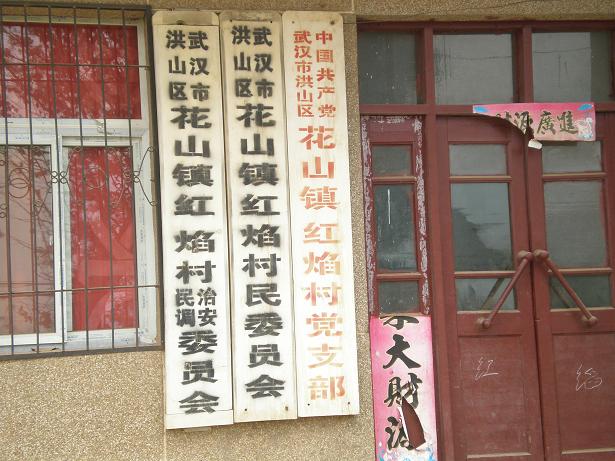 武汉市
洪山区
花山镇红焰村
治安
民调
委员会
武汉市
洪山区
花山镇红焰村民委员会
中国共产党
武汉市洪山区
花山镇红焰村党支部
進廣源
大财源
红